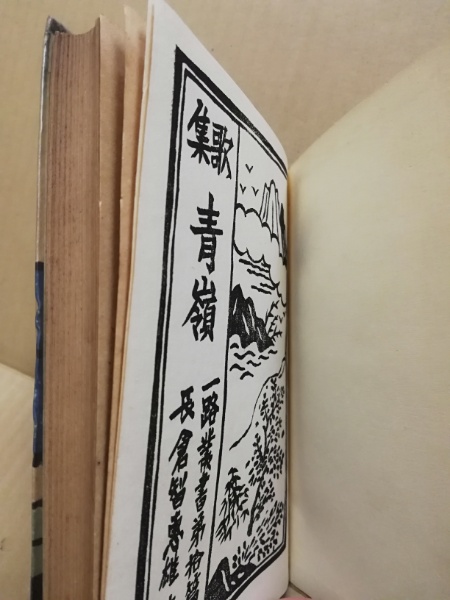 歌集
青嶺
一路叢書第拾
長倉智恵雄